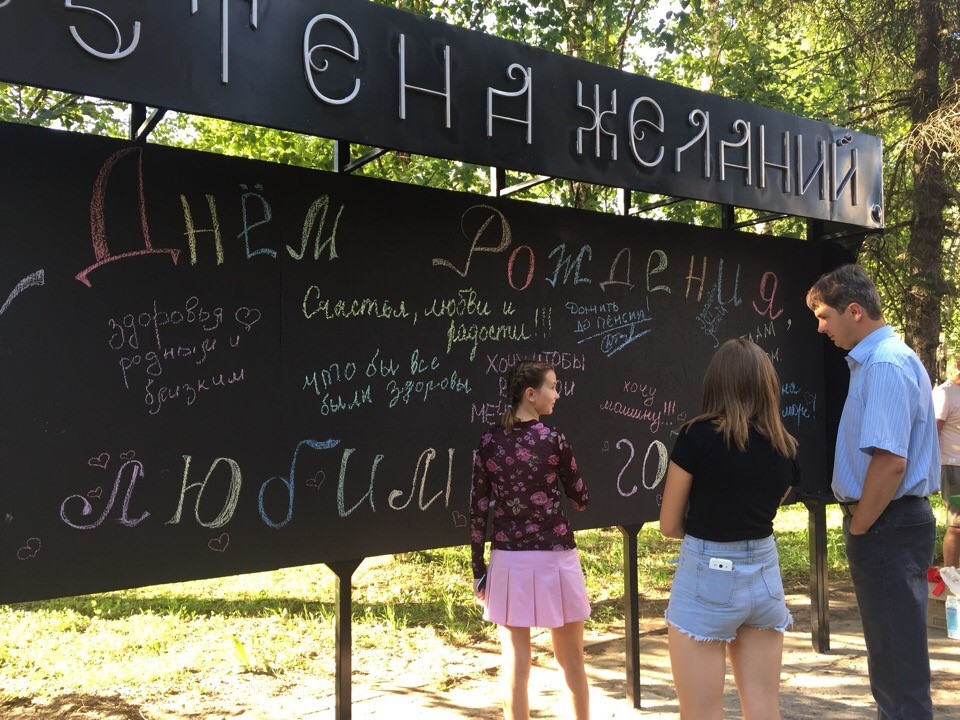 СТЕНА ЖЕЛАНИЙ
Днём Рождения
здоровья
родным и
близким
Счастья, любви и
радости!!!
Дожить
до пенсии!
что бы все
были здоровы
хочу чтобы
хочу
машину!!!
на
море!
Любим